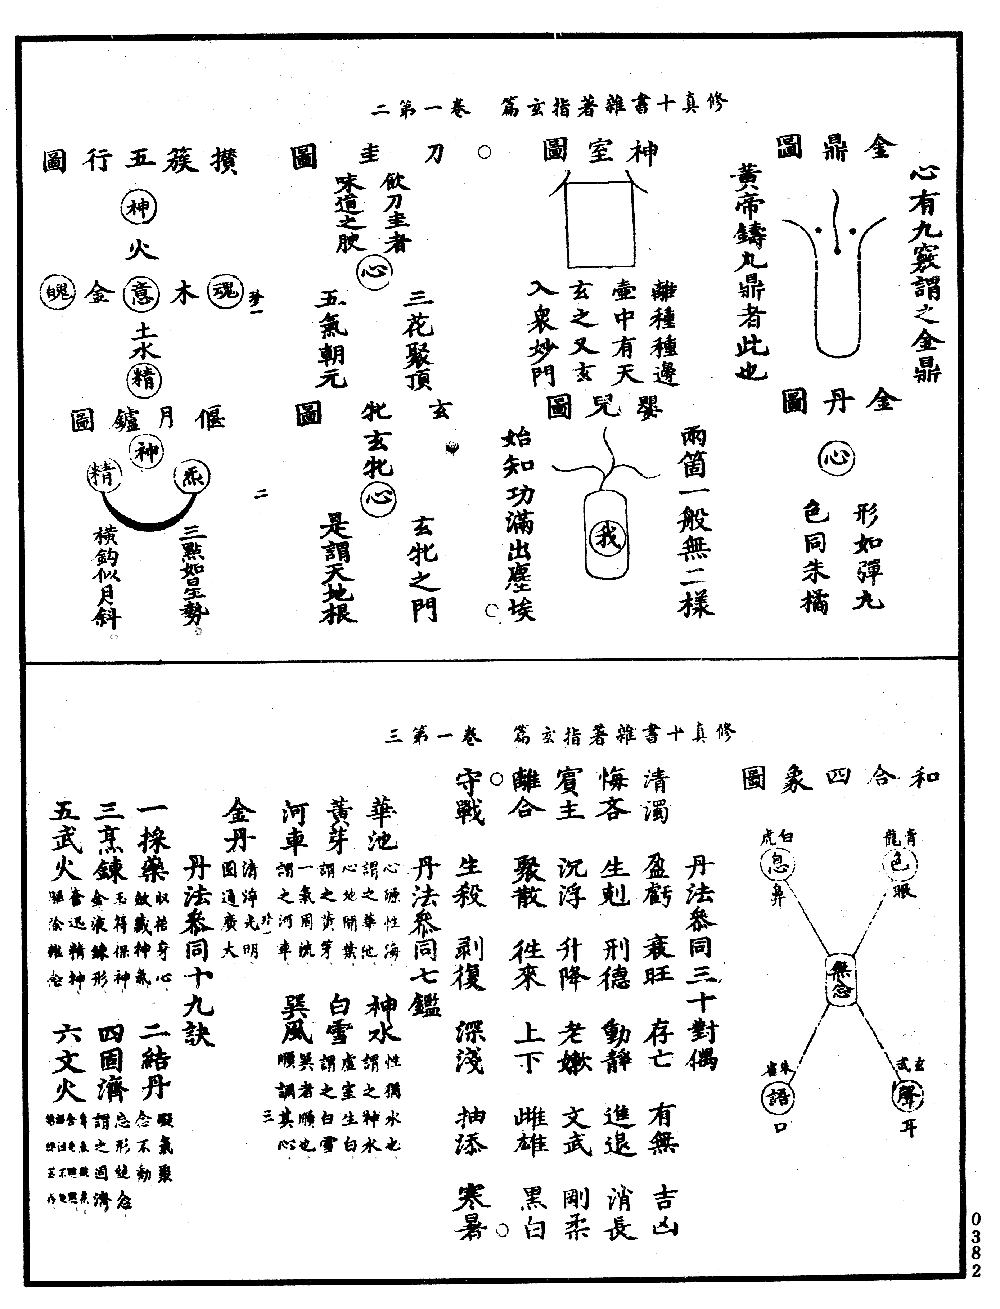 修真十書雜著指玄篇 卷一第二
金鼎圖
心有九竅謂之金鼎
黃帝鑄九鼎者此也
金丹圖
心
形如彈丸
色同朱橘
神室圖
離種種邊
壺中有天
玄之又玄
入衆妙門
嬰兒圖
兩箇一般無二樣
我
始知功滿出塵埃
刀圭圖
飲刀圭者
味道之腴
心
三花聚頂
五氣朝元
玄牝圖
玄牝
心
玄牝之門
是謂天地根
攢簇五行圖
神
火
魂 木 意 金 魄
土
水
精
偃月爐圖
神
炁
精
三點如星勢
橫鈎似月斜
二
修真十書雜著指玄篇 卷一第三
和合四象圖
青龍 色 眼
白虎 息 鼻
無念
玄武 聲 耳
朱雀 語 口
丹法參同三十對偶
清濁 盈虧 衰旺 存亡 有無 吉凶
悔吝 生剋 刑德 動靜 進退 消長
賓主 沉浮 升降 老嫩 文武 剛柔
離合 聚散 往來 上下 雌雄 黑白
守戰 生殺 剥復 深淺 抽添 寒暑
丹法參同七鑑
華池 心源性海謂之華池 神水 性猶水也謂之神水
黃芽 心地開花謂之黃芽 白雪 虛室生白謂之白雪
河車 一氣周流謂之河車 巽風 巽者順也順調其心
三
金丹 清淨光明圓通廣大
丹法參同十九訣
一採藥 收拾身心歛藏神氣 二結丹 凝氣聚念不動
三烹鍊 玉符保神金液鍊形 四固濟 忘形絕念謂之固濟
五武火 奮迅精神驅除雜念 六文火
0382